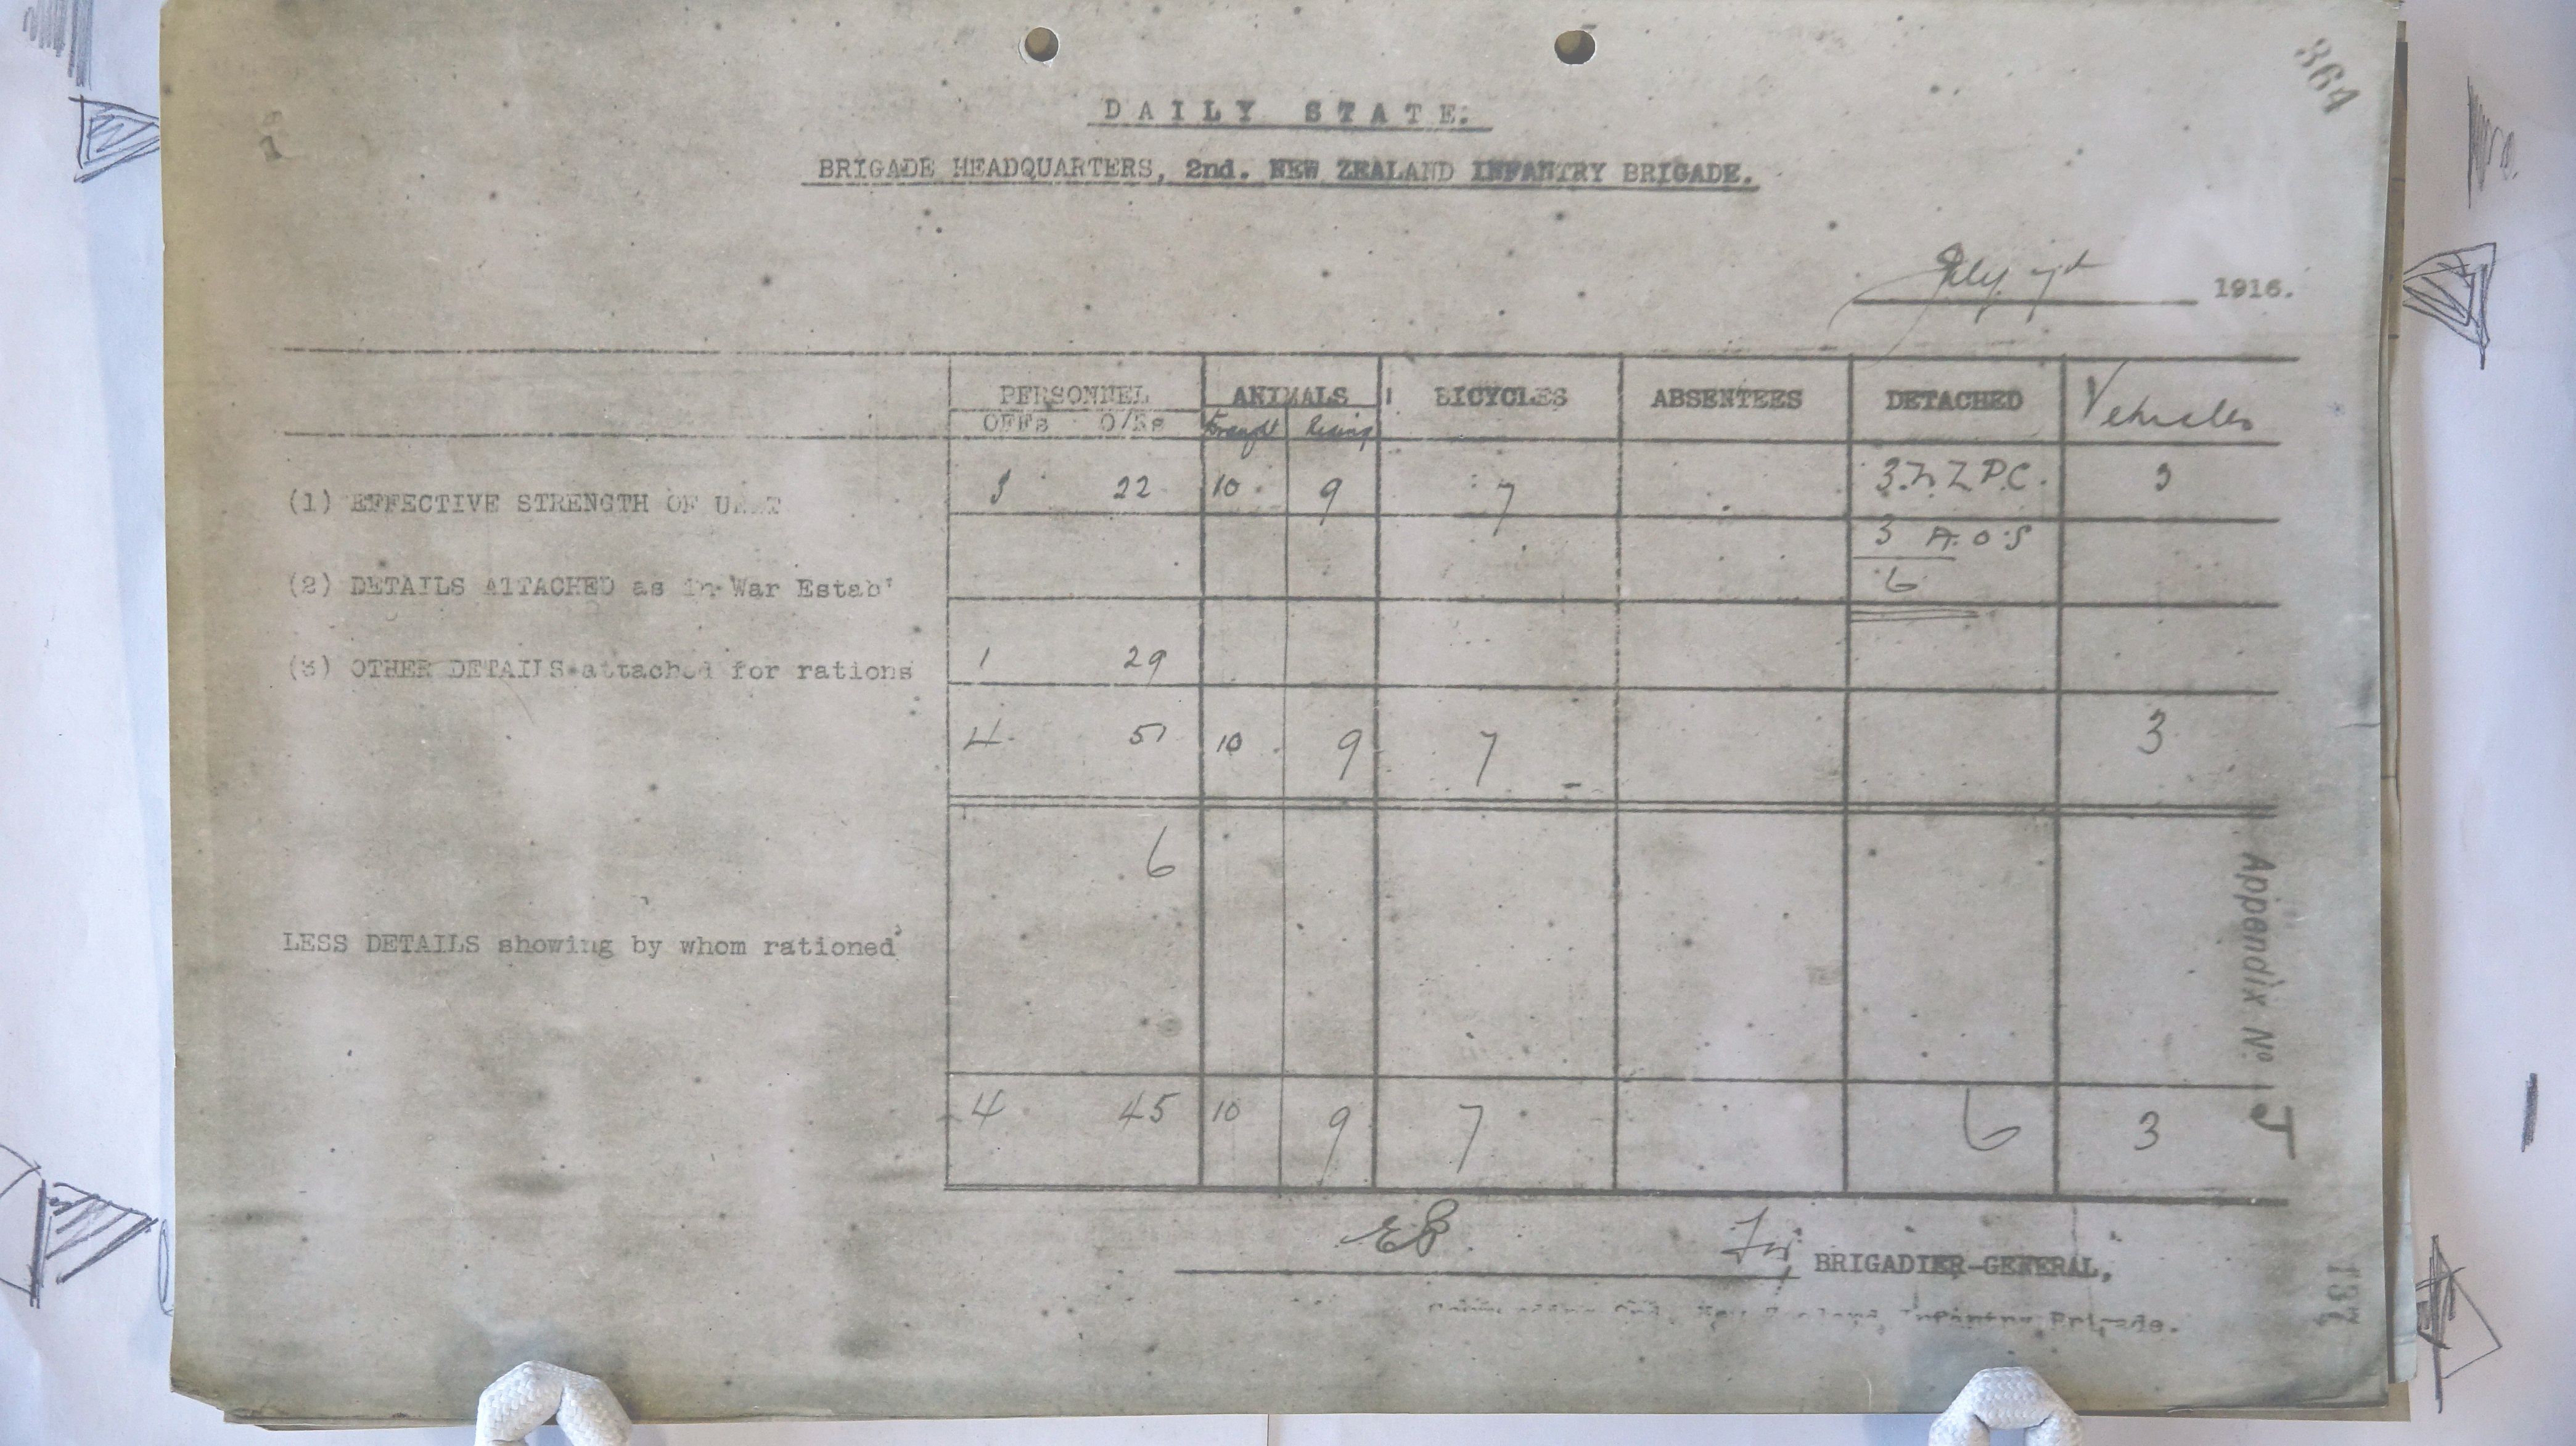 364
DAILY STATE.
BRIGADE HEADQUARTERS, 2nd. NEW ZEALAND INFANTRY BRIGADE.
July 7th 1916.
PERSONNEL ANIMALS BICYCLES ABSENTEES DETACHED Vehicles
OFFs O/Rs Draught Riding
(1) EFFECTIVE STRENGTH OF UNIT 3 22 10 9 7 3.N.Z.P.C. 3
3 A.O.S
(2) DETAILS ATTACHED as in War Estab' 6
(3) OTHER DETAILS attached for rations 1 29
4 51 10 9 7 3
6
LESS DETAILS showing by whom rationed
4 45 10 9 7 6 3
Appendix No J
For BRIGADIER-GENERAL,
Commanding 2nd. New Zealand Infantry Brigade.